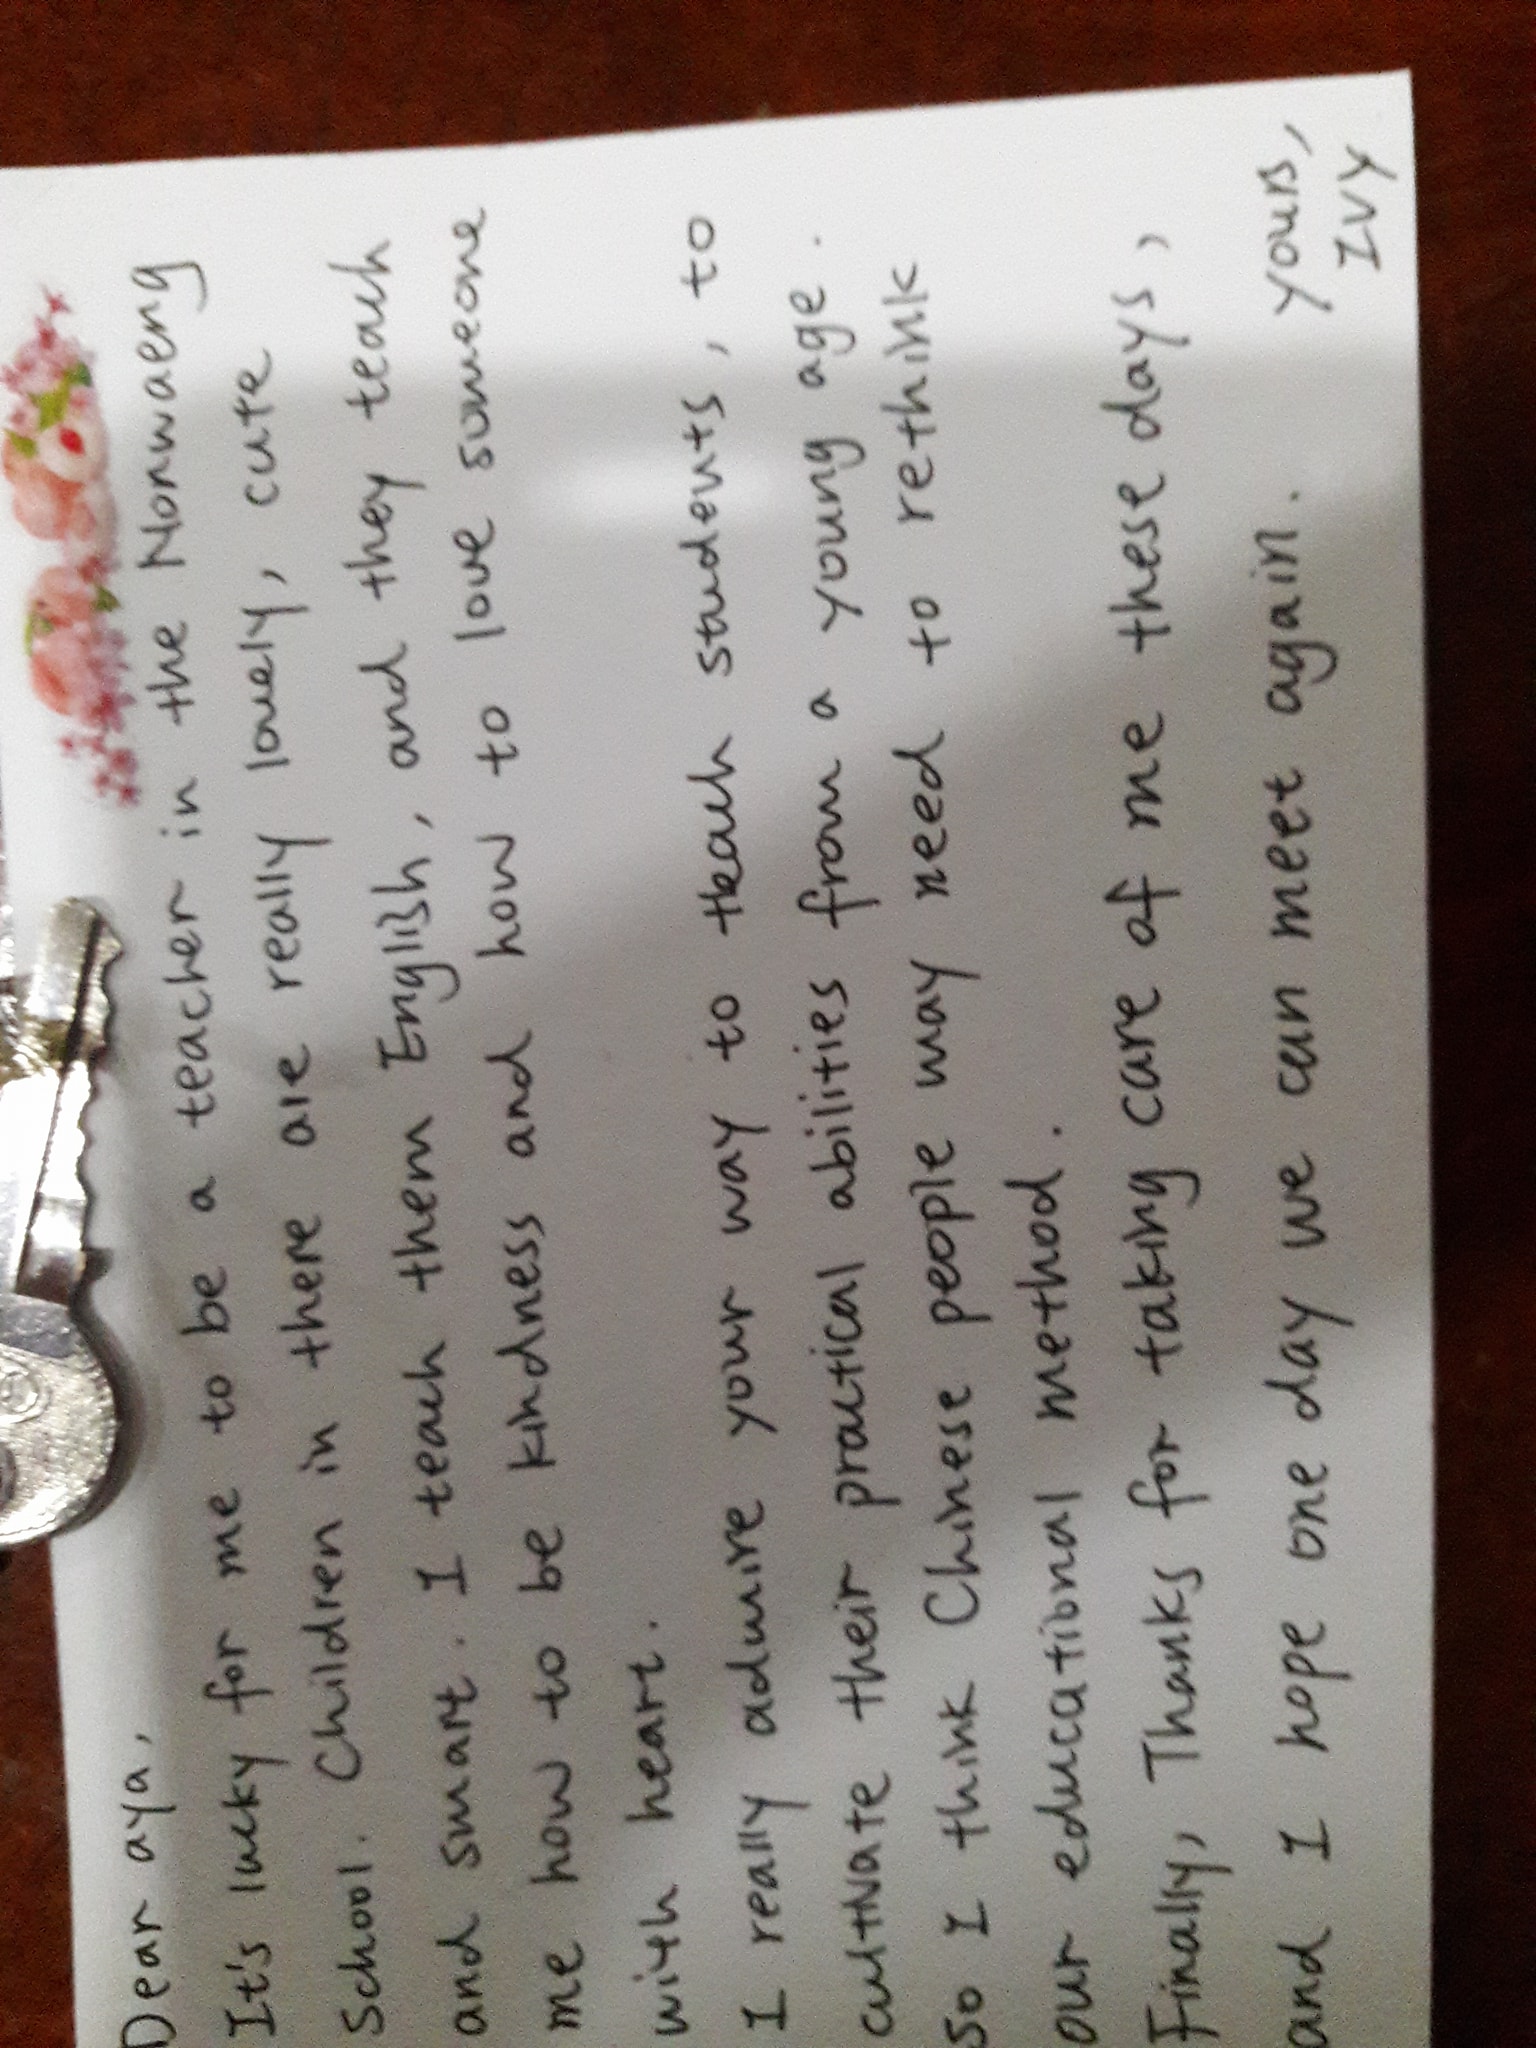 Dear aya,
It's lucky for me to be a teacher in the Nonwaeng
School. Children in there are really lovely, cute
and smart. I teach them English, and they teach
me how to be kindness and how to love someone
with heart.
I really admire your way to teach students, to
cultivate their practical abilities from a young age.
So I think Chinese people may need to rethink
our educational method.
Finally, Thanks for taking care of me these days,
and I hope one day we can meet again. yours,
IVY